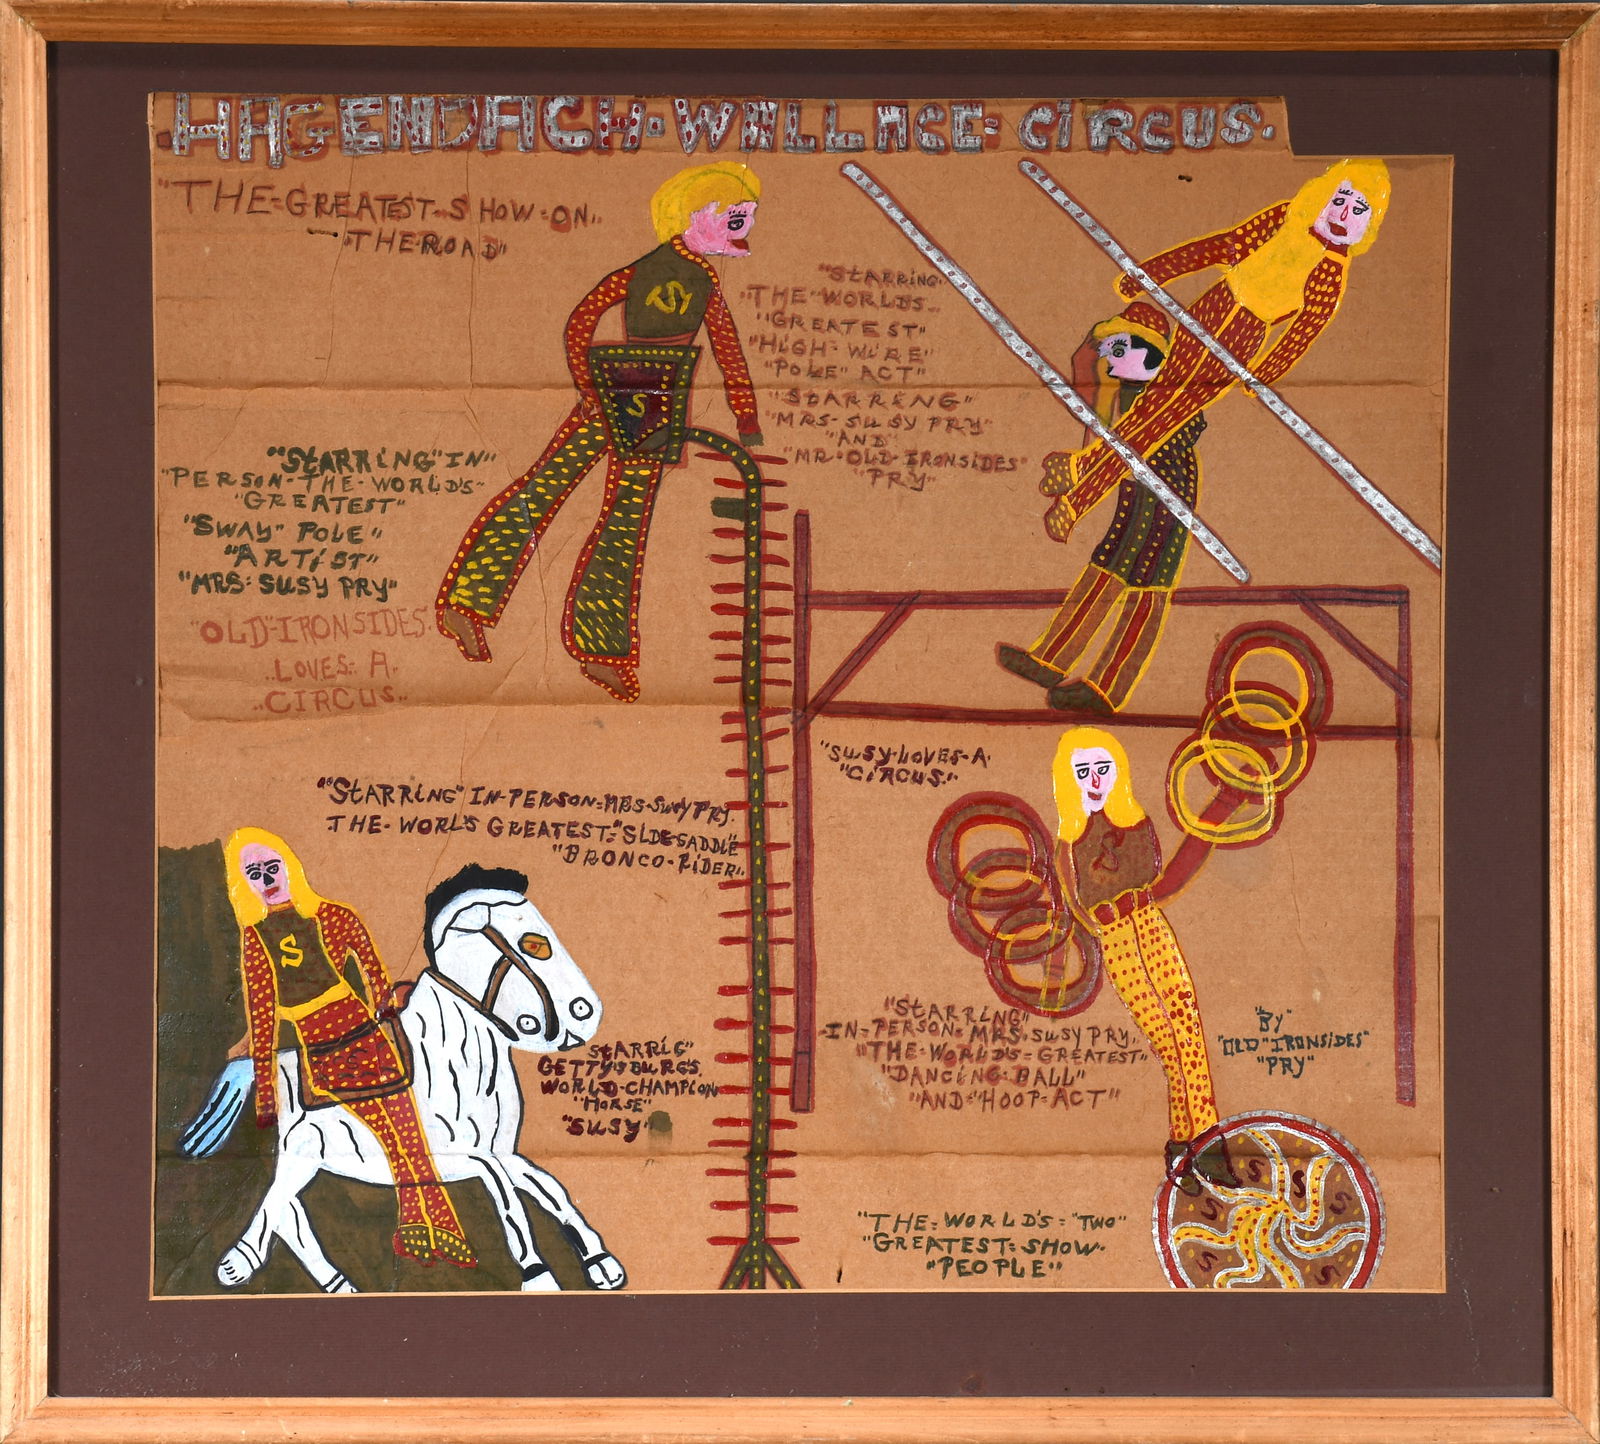 .HAGENDACH-WALLACE=CIRCUS.
"THE=GREATEST=SHOW=ON..
"THE ROAD"
"STARRING
..THE"WORLDS..
"GREATEST"
"HIGH-WIRE"
"POLE" ACT"
"STARRENG"
"MRS-SUSY PRY"
"AND"
"MR-OLD-IRONSIDES"
"PRY"
"STARRING"IN"
"PERSON-THE-WORLD'S"
"GREATEST"
"SWAY" POLE"
"ARTIST"
"MRS=SUSY PRY"
"OLD"IRONSIDES.
..LOVES=A.
..CIRCUS..
"SUSY-LOVES-A.
"CIRCUS."
"STARRING" IN-PERSON=MRS-SUSY PRY.
.THE-WORL'S GREATEST="SIDE-SADDLE"
"BRONCO-RIDER..
STARRIG"
GETTY'SBURG'S.
WORLD-CHAMPION
"HORSE"
"SUSY"
"STARRING"
IN=PERSON=MRS.SUSY PRY.
"THE-WORLD'S=GREATEST"
"DANCING-BALL"
"AND="HOOP=ACT"
"BY"
"OLD"IRONSIDES"
"PRY"
"THE=WORLD'S="TWO"
"GREATEST=SHOW-
"PEOPLE"
S
TSY
S
S
S
S
S
S
S
S